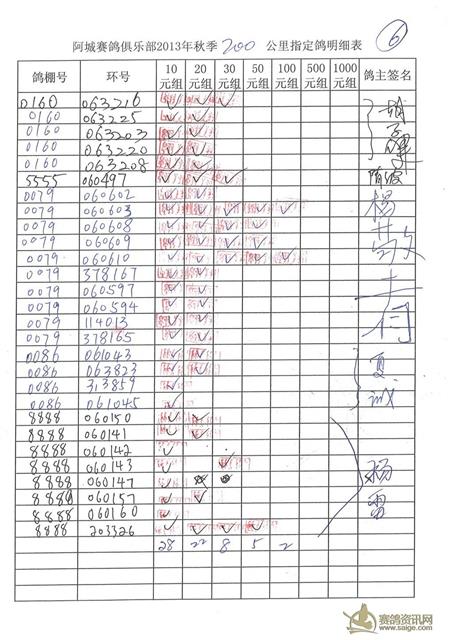 阿城赛鸽俱乐部2013年秋季 200 公里指定鸽明细表 ⑥
鸽棚号 环号 10元组 20元组 30元组 50元组 100元组 500元组 1000元组 鸽主签名
0160 063216 ✓ ✓ ✓
0160 063225 ✓ ✓
0160 063203 ✓ ✓
0160 063220 ✓ ✓
0160 063208 ✓ ✓
5555 060497 ✓ ✓ ✓ 陈波
0079 060602 ✓ ✓
0079 060603 ✓ ✓ ✓ ✓ ✓
0079 060608 ✓ ✓ ✓ ✓
0079 060609 ✓ ✓ ✓ ✓
0079 060610 ✓ ✓ ✓ ✓ ✓
0079 378167 ✓ ✓
0079 060597 ✓ ✓
0079 060594 ✓ ✓
0079 114013 ✓ ✓
0079 378165 ✓ ✓
0086 061043 ✓ ✓
0086 063823 ✓ ✓
0086 313859 ✓
0086 061045 ✓
8888 060150 ✓ ✓
8888 060141 ✓ ✓
8888 060142
8888 060143 ✓
8888 060147 ✓
8888 060157 ✓ ✓
8888 060160
8888 203326 ✓ ✓ ✓ ✓
杨雷
28 22 8 5 2
赛鸽资讯网
www.saige.com